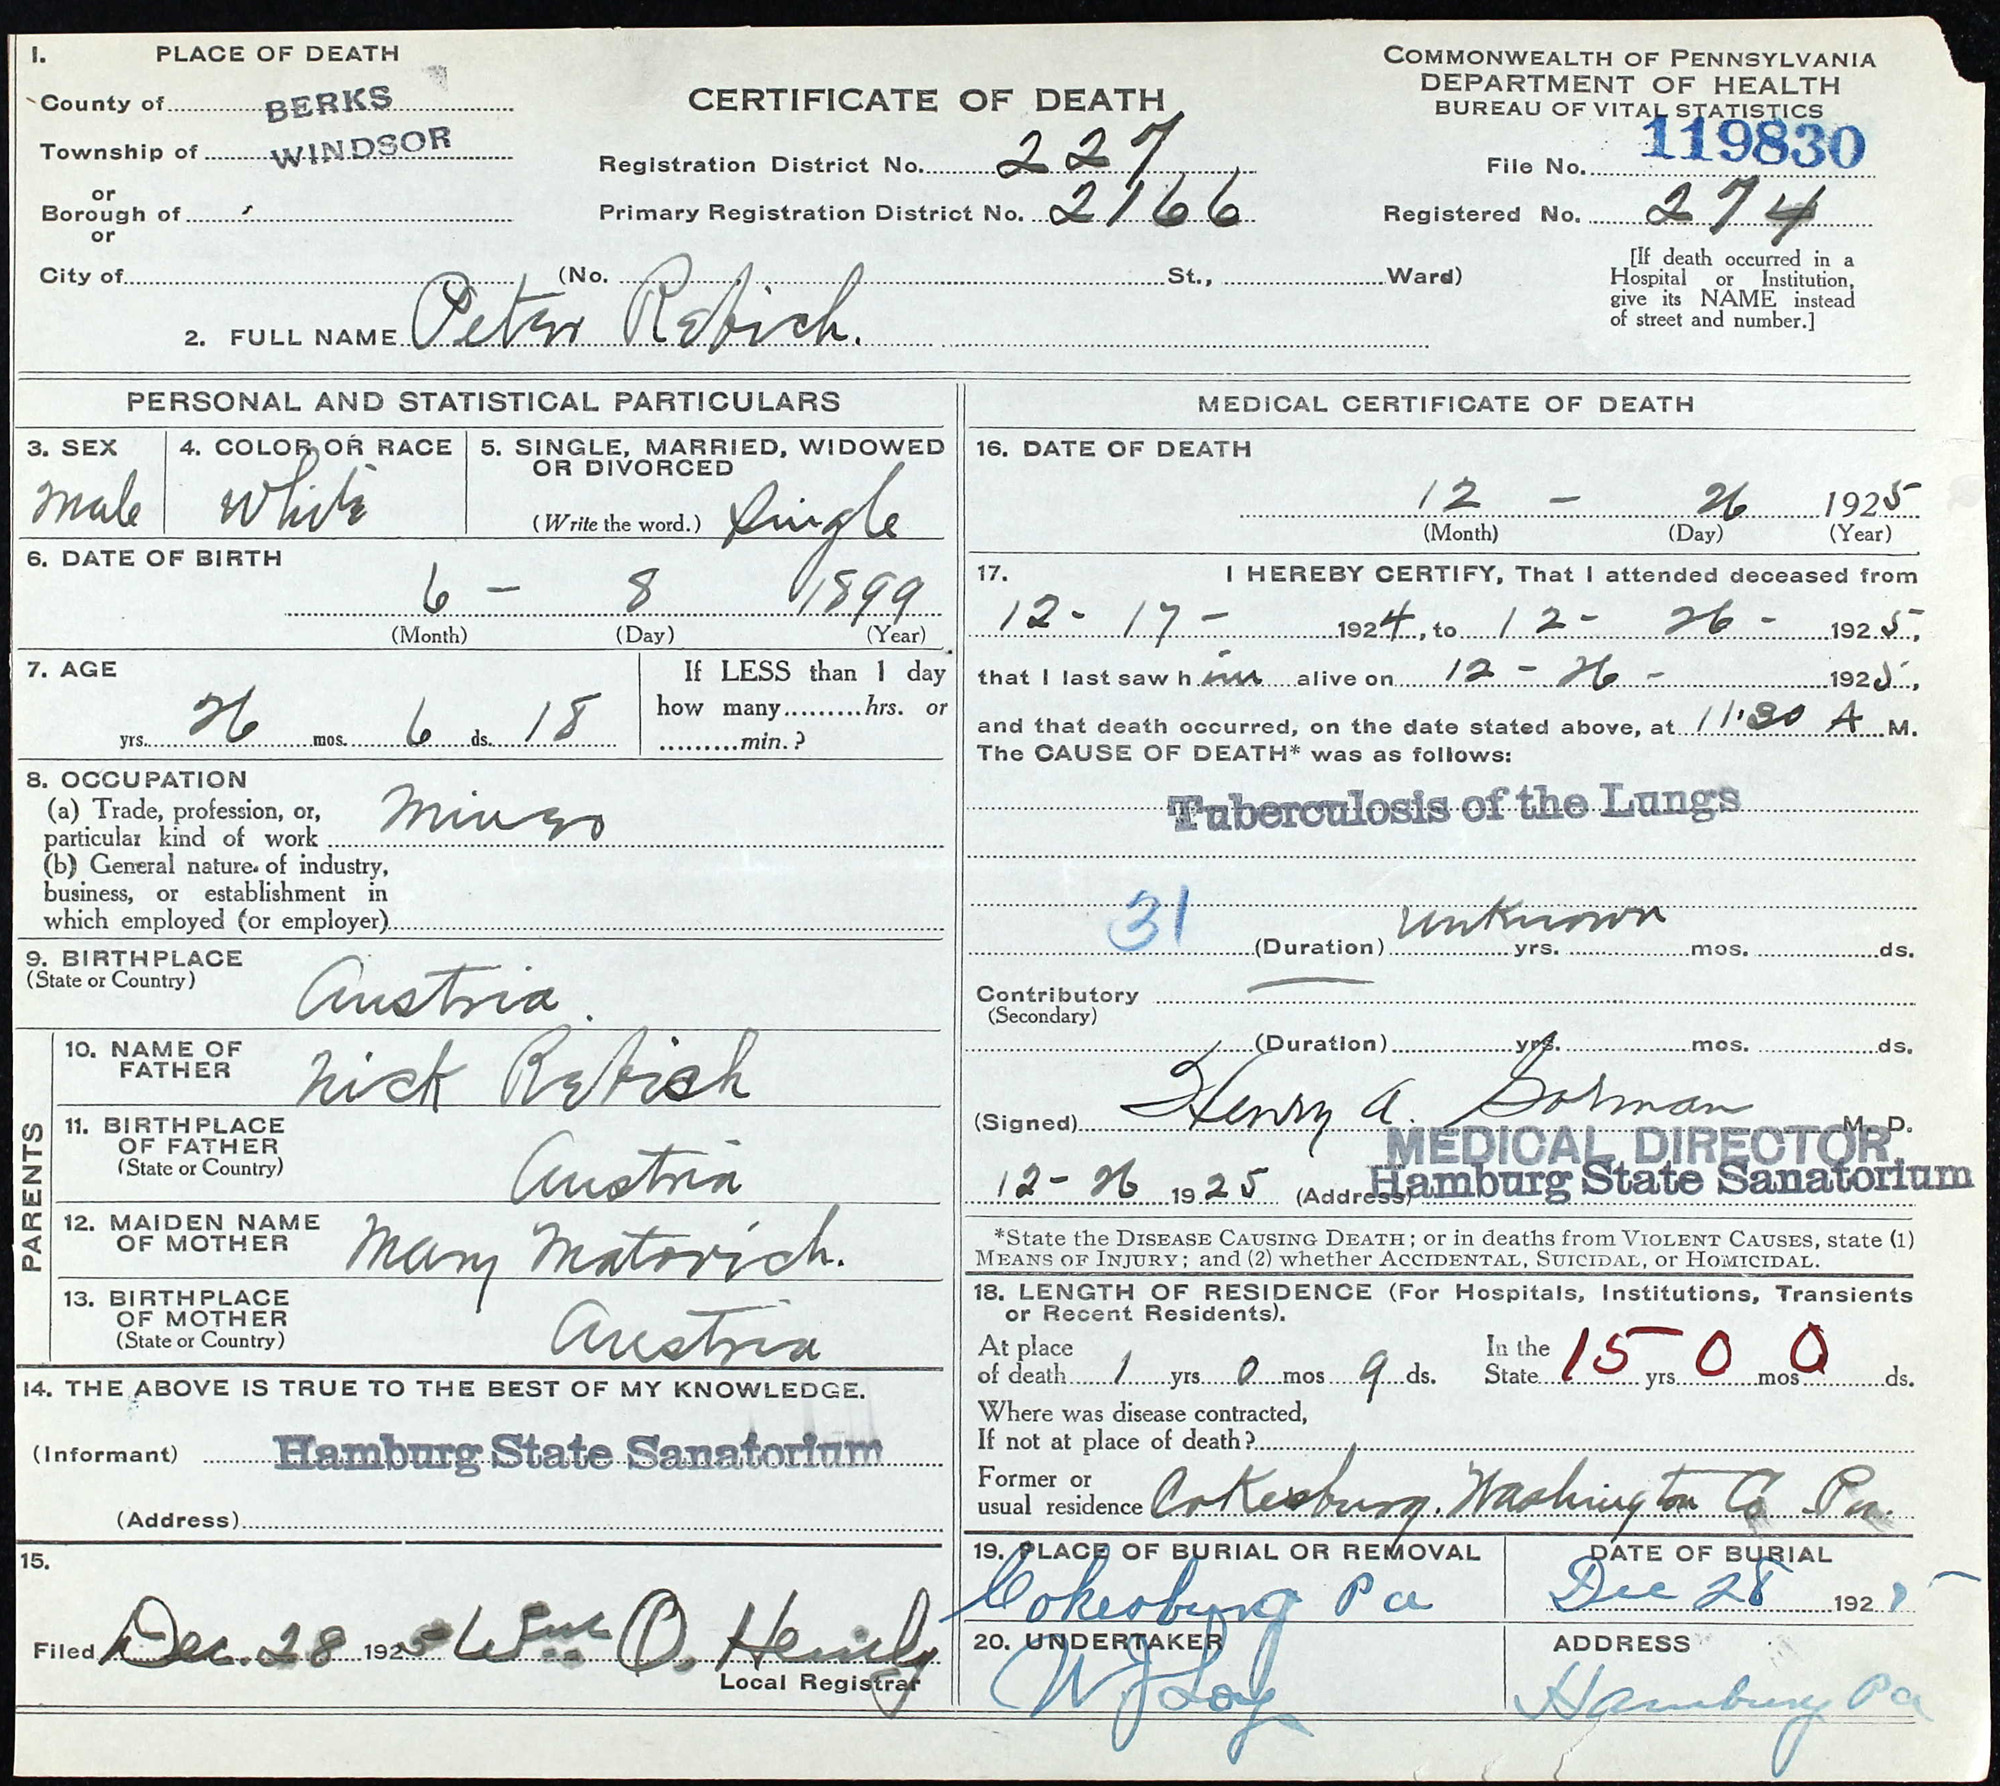 1. PLACE OF DEATH
County of BERKS
Township of WINDSOR
or
Borough of
or
City of (No. St., Ward)
CERTIFICATE OF DEATH
Registration District No. 227
Primary Registration District No. 2166
COMMONWEALTH OF PENNSYLVANIA
DEPARTMENT OF HEALTH
BUREAU OF VITAL STATISTICS
File No. 119830
Registered No. 274
[If death occurred in a
Hospital or Institution,
give its NAME instead
of street and number.]
2. FULL NAME Peter Rebich.
PERSONAL AND STATISTICAL PARTICULARS
3. SEX
Male
4. COLOR OR RACE
White
5. SINGLE, MARRIED, WIDOWED
OR DIVORCED
(Write the word.) Single
6. DATE OF BIRTH
6 - 8 1899
(Month) (Day) (Year)
7. AGE
yrs. 26 mos. 6 ds. 18
If LESS than 1 day
how many hrs. or
min.?
8. OCCUPATION
(a) Trade, profession, or,
particular kind of work Miner
(b) General nature of industry,
business, or establishment in
which employed (or employer)
9. BIRTHPLACE
(State or Country)
Austria.
PARENTS
10. NAME OF
FATHER
Nick Rebich
11. BIRTHPLACE
OF FATHER
(State or Country)
Austria
12. MAIDEN NAME
OF MOTHER
Mary Matovich.
13. BIRTHPLACE
OF MOTHER
(State or Country)
Austria
14. THE ABOVE IS TRUE TO THE BEST OF MY KNOWLEDGE.
(Informant) Hamburg State Sanatorium
(Address)
15.
Filed Dec. 28 1925 Wm O.
Local Registrar
MEDICAL CERTIFICATE OF DEATH
16. DATE OF DEATH
12 - 26 1925
(Month) (Day) (Year)
17. I HEREBY CERTIFY, That I attended deceased from
12 - 17 - 1924, to 12 - 26 - 1925,
that I last saw him alive on 12 - 26 - 1925,
and that death occurred, on the date stated above, at 11:30 A M.
The CAUSE OF DEATH* was as follows:
Tuberculosis of the Lungs
31 (Duration) unknown yrs. mos. ds.
Contributory
(Secondary)
(Duration) yrs. mos. ds.
(Signed) Henry A. Gorman M. D.
MEDICAL DIRECTOR
12 - 26 1925 (Address) Hamburg State Sanatorium
*State the DISEASE CAUSING DEATH; or in deaths from VIOLENT CAUSES, state (1)
MEANS OF INJURY; and (2) whether ACCIDENTAL, SUICIDAL, or HOMICIDAL.
18. LENGTH OF RESIDENCE (For Hospitals, Institutions, Transients
or Recent Residents).
At place
of death 1 yrs 0 mos 9 ds.
In the
State 15 yrs 0 mos 0 ds.
Where was disease contracted,
If not at place of death?
Former or
usual residence Cokesburg. Washington Co Pa.
19. PLACE OF BURIAL OR REMOVAL
Cokesburg Pa
DATE OF BURIAL
Dec 28 1925
20. UNDERTAKER
W J Loy
ADDRESS
Hamburg Pa